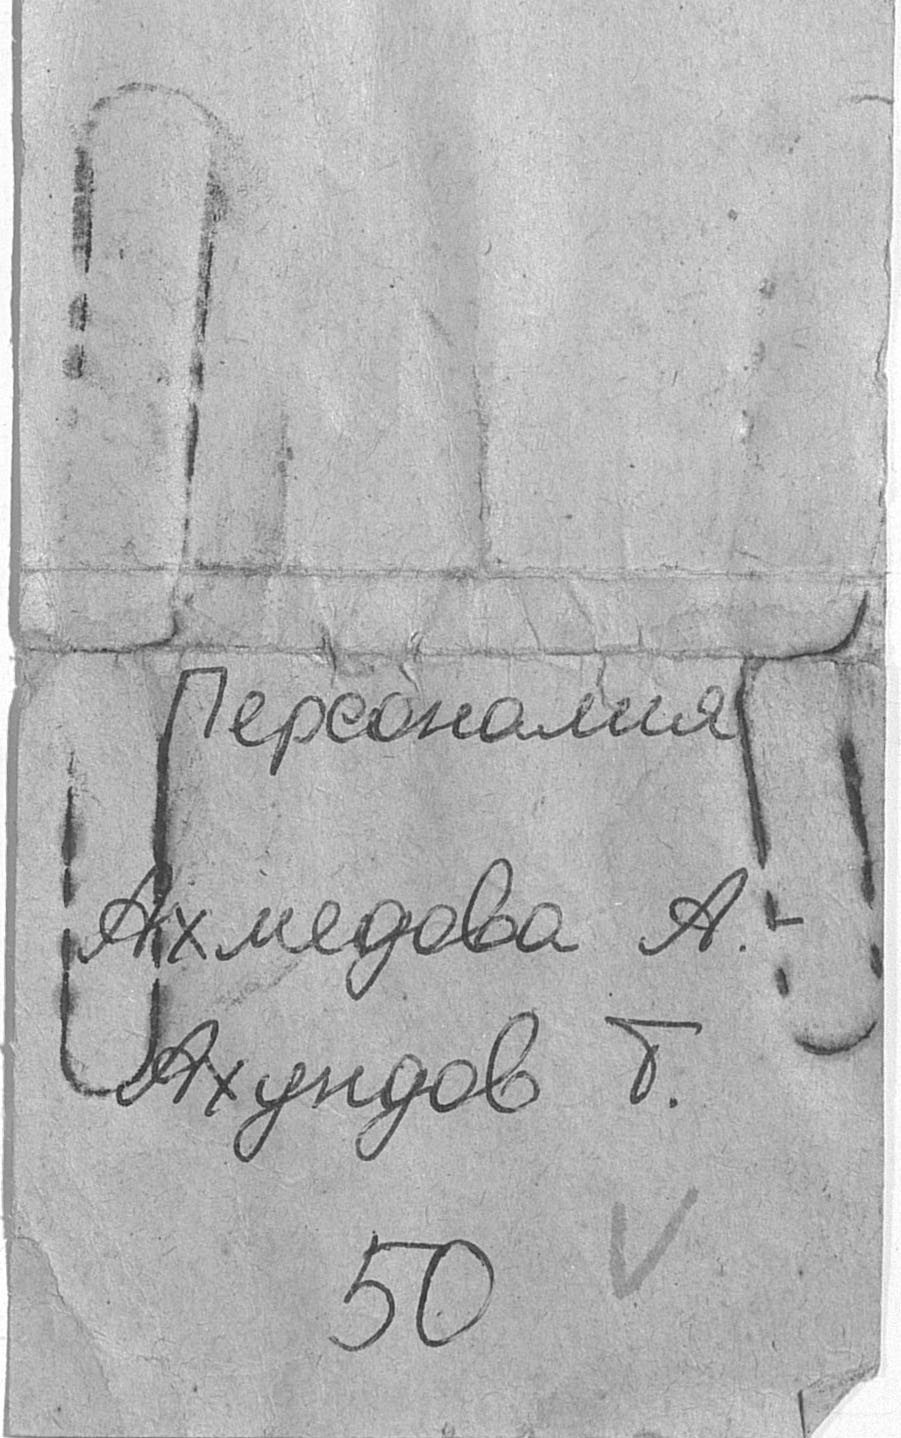 Персоналия
Ахмедова А. -
Ахундов Т.
50